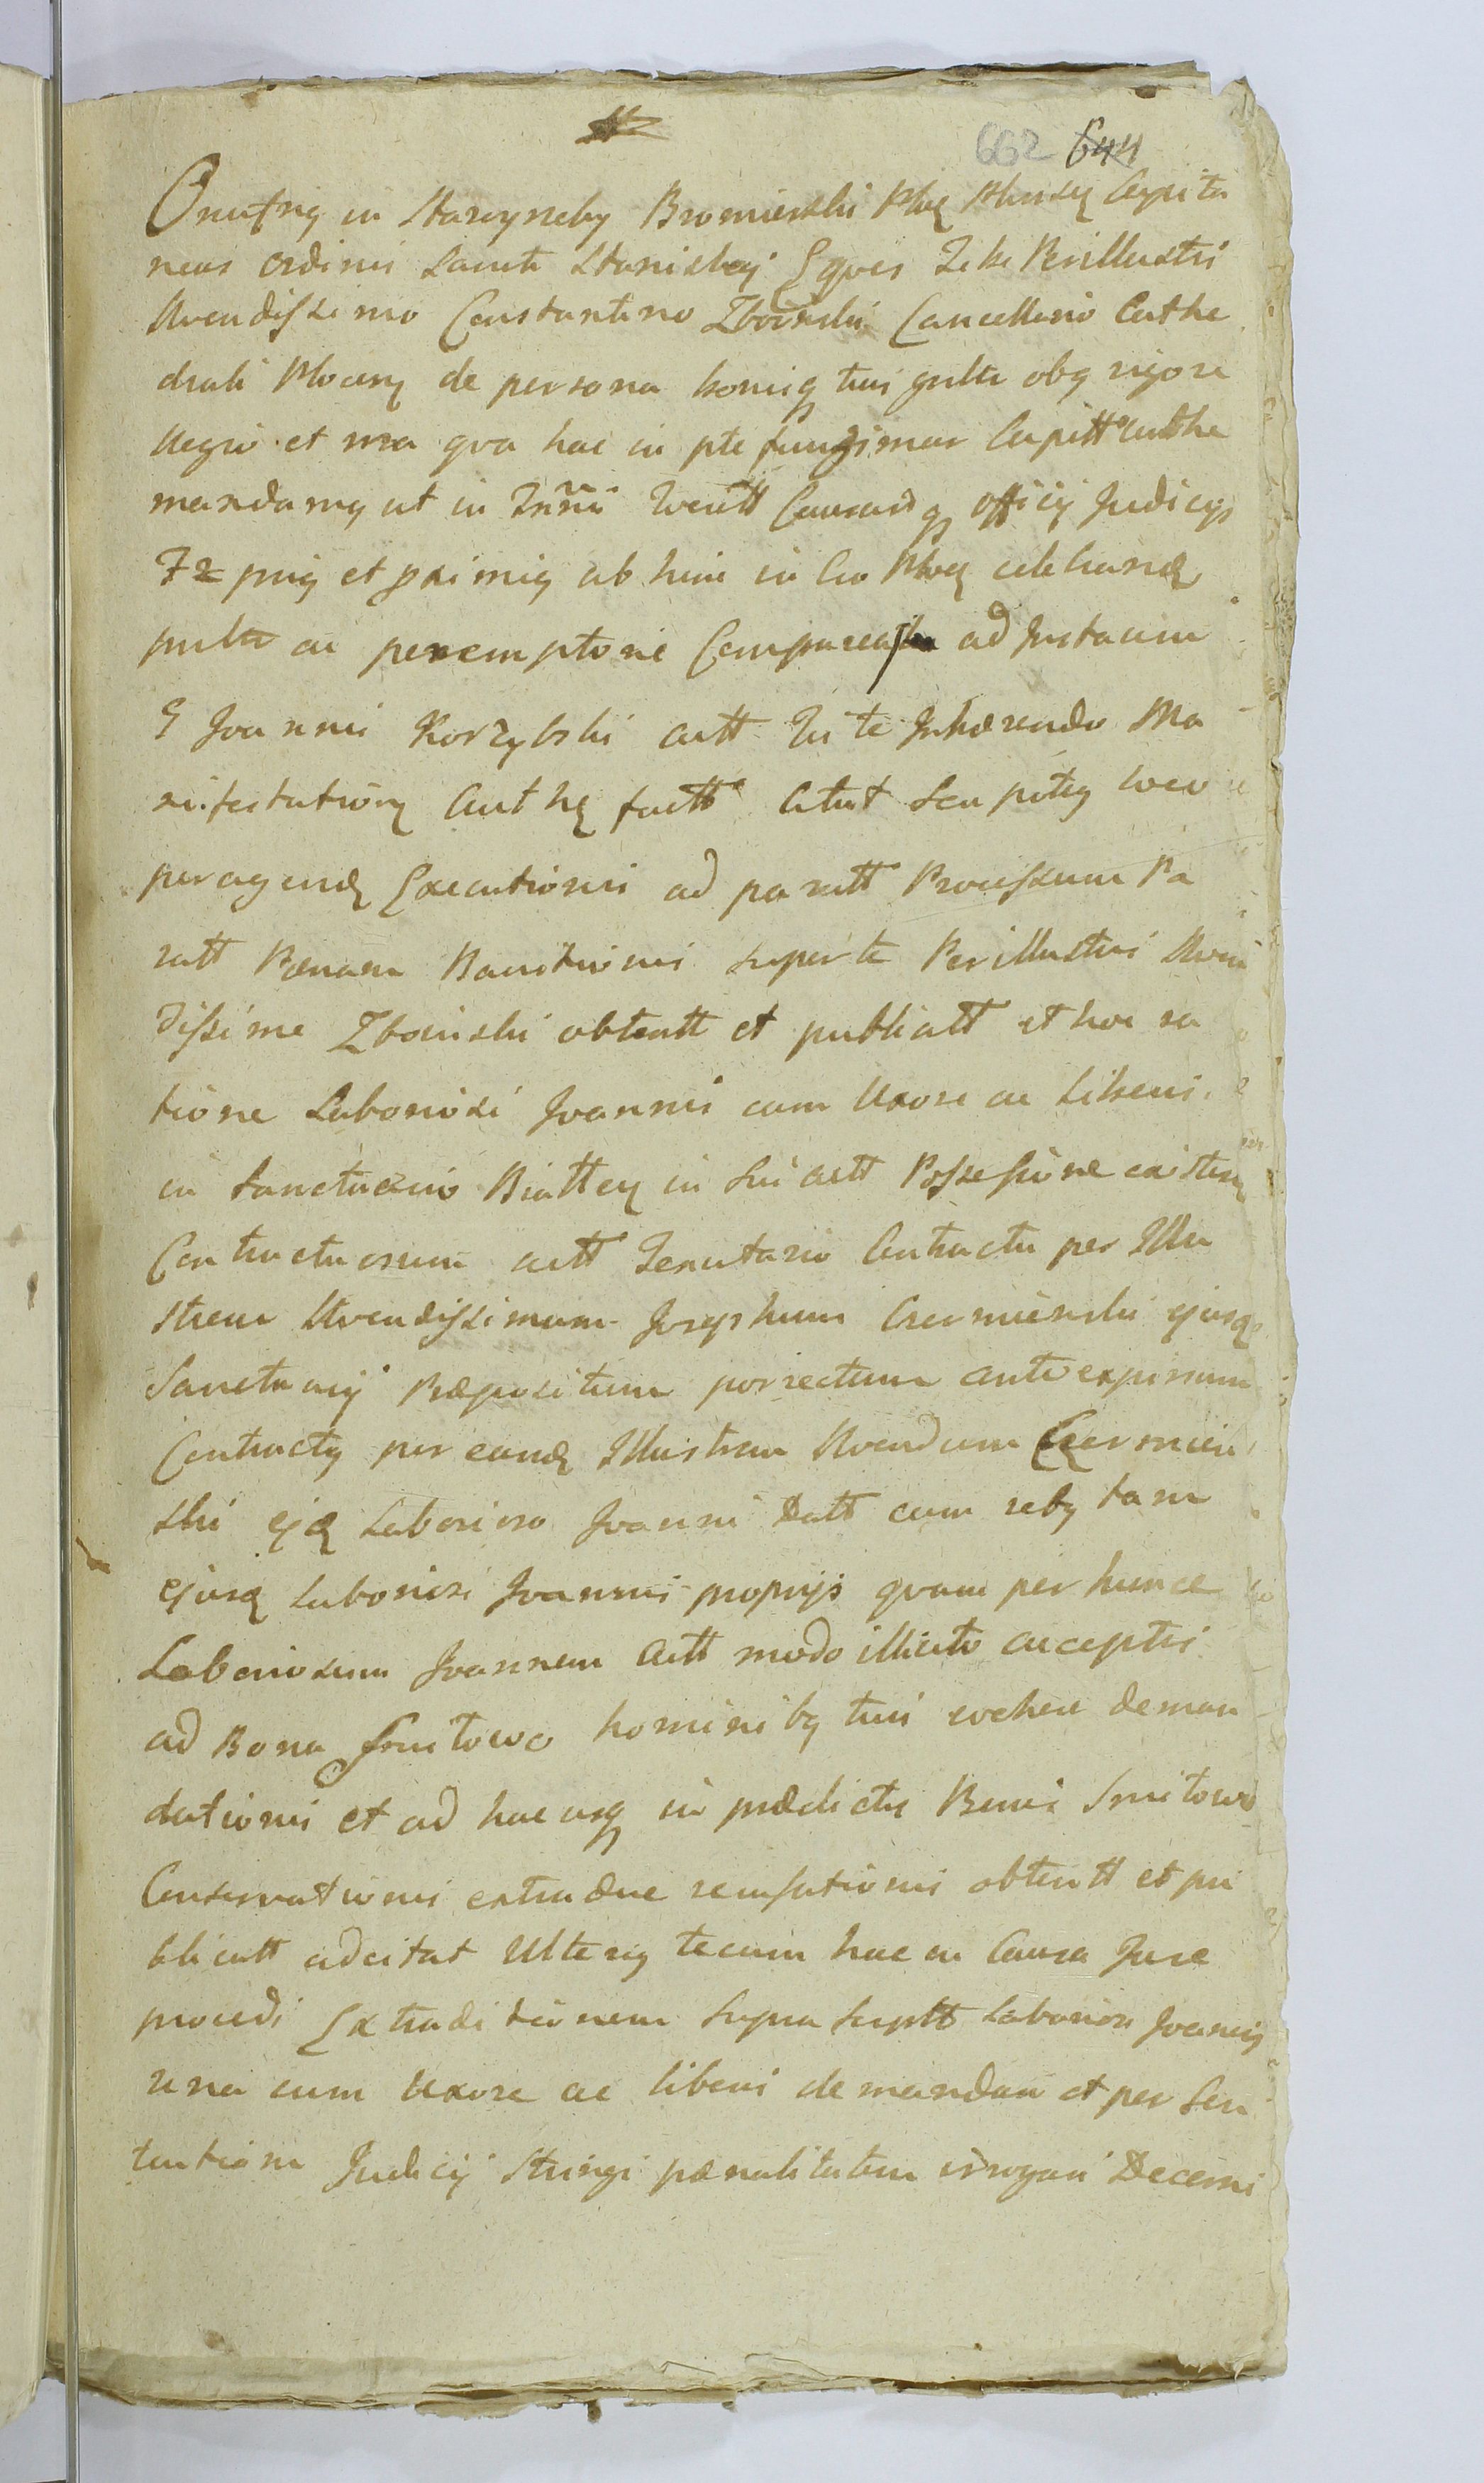 662 644
Onufrig in Starzyneby Bromierski Plocq Capita
neus ordinis Sancti Stanislaj Eques Tibi Perillustri
Rvendissimo Constantino Zboinski Cancellario Cathe
drali Plocen de persona bonisq tuis gnltr obq rigore
Regio et nra qva hac in pte fungimur Capittli authe
mandamg ut in Trnis Terrtt Causarq officij Judicijs
pmis et pximis ab hinc in Cro Plocq celebrand
pnltr ac peremptorie Compareas ad Instaam
G Joannis Korzybski actt Qui te Inhærendo Ma
nifestationi Authq factt Citat Seu ptis loco
peragendæ Executionis ad paratt Processum Pa
ratt Pœnam Bannitionis super te Perillustri Rven
dissime Zboinski obtentt et publicatt et hoc ra
tione Laboriosi Joannis cum Uxore ac Liberis
in Sanctuario Biattey in Sui actt Possessione existen
Contractuorum actt Tenutario Contractu per Illu
strem Rvendissimum Josephum Czermienski ejusq
Sanctuarij Præpositum porrectum ante expirum
Contractg per eund Illustrem Rvendum Czermien
ski ejq Laborioso Joanni Datt cum rebg tam
ejusq Laboriosi Joannis proprijs qvam per hunce
Laboriosum Joannem Actt modo illicito acceptis
ad Bona Smitowo hominibg tuis evehere deman
dationis et ad hac usq in prædictis Bonis Smitowo
Conservationis extradere recusationis obtentt et pu
blicatt adcitat Ulterig tecum hac in Causa Jure
procedi Extraditionem Supra Scriptt Laboriosi Joannis
una cum Uxore ac liberis demandari et per Sen
tentiam Judicij Stringi pœnalitatem irrogari Decerni